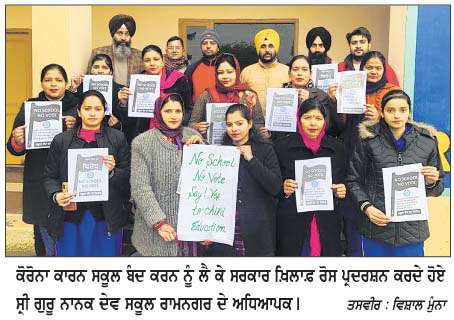 NO SCHOOL
NO VOTE
No School
No Vote
Say! Yes
to Child
Education
ਕੋਰੋਨਾ ਕਾਰਨ ਸਕੂਲ ਬੰਦ ਕਰਨ ਨੂੰ ਲੈ ਕੇ ਸਰਕਾਰ ਖ਼ਿਲਾਫ਼ ਰੋਸ ਪ੍ਰਦਰਸ਼ਨ ਕਰਦੇ ਹੋਏ
ਸ੍ਰੀ ਗੁਰੂ ਨਾਨਕ ਦੇਵ ਸਕੂਲ ਰਾਮਨਗਰ ਦੇ ਅਧਿਆਪਕ।
ਤਸਵੀਰ : ਵਿਸ਼ਾਲ ਮੁੰਨਾ